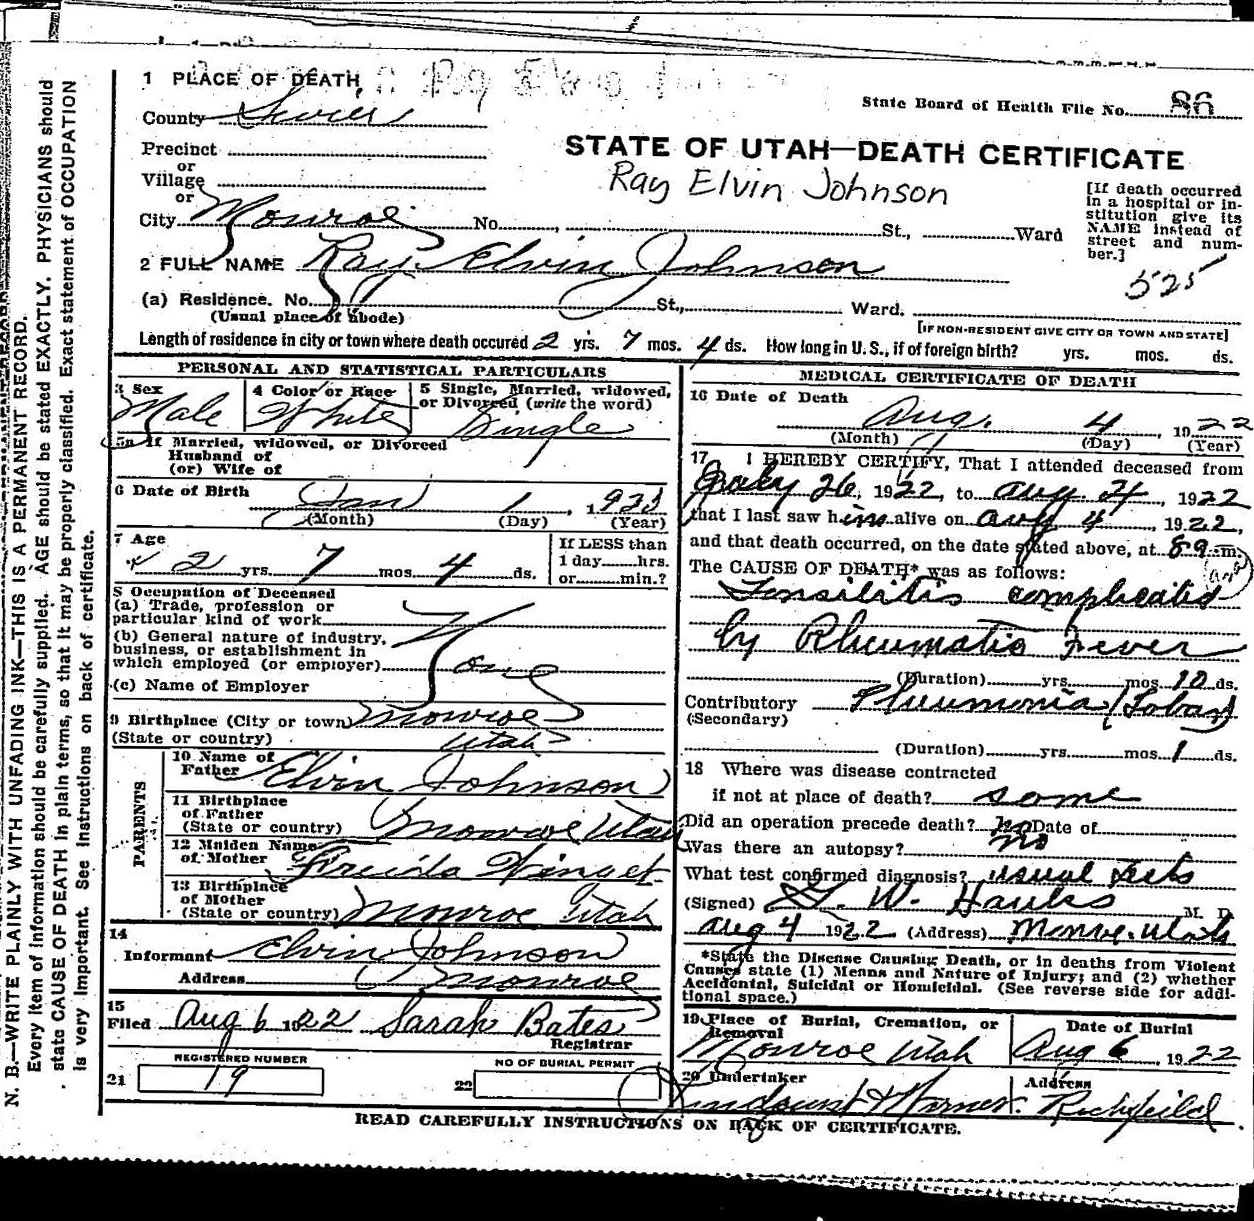 1 PLACE OF DEATH
State Board of Health File No. 86
County Sevier
STATE OF UTAH—DEATH CERTIFICATE
Precinct
or
Village
or
Ray Elvin Johnson
[If death occurred in a hospital or in-
stitution give its
NAME instead of
street and num-
ber.]
City Monroe No. , St., Ward
2 FULL NAME Ray Elvin Johnson
525
(a) Residence. No. St., Ward.
(Usual place of abode)
[IF NON-RESIDENT GIVE CITY OR TOWN AND STATE]
Length of residence in city or town where death occured 2 yrs. 7 mos. 4 ds. How long in U. S., if of foreign birth? yrs. mos. ds.
PERSONAL AND STATISTICAL PARTICULARS
3 Sex 4 Color or Race 5 Single, Married, widowed,
or Divorced (write the word)
Male White Single
5a If Married, widowed, or Divorced
Husband of
(or) Wife of
6 Date of Birth Jan 1, 192
(Month) (Day) (Year)
7 Age
2 yrs. 7 mos. 4 ds.
If LESS than
1 day hrs.
or min.?
8 Occupation of Deceased
(a) Trade, profession or
particular kind of work
(b) General nature of industry,
business, or establishment in
which employed (or employer)
None
(c) Name of Employer
9 Birthplace (City or town) Monroe
(State or country) Utah
PARENTS
10 Name of
Father Elvin Johnson
11 Birthplace
of Father
(State or country) Monroe Utah
12 Maiden Name
of Mother Freida Winget
13 Birthplace
of Mother
(State or country) Monroe Utah
14
Informant Elvin Johnson
Address Monroe
15
Filed Aug 6 1922 Sarah Bates
Registrar
REGISTERED NUMBER
21 19
NO OF BURIAL PERMIT
22
MEDICAL CERTIFICATE OF DEATH
16 Date of Death
Aug. 4, 1922
(Month) (Day) (Year)
17 I HEREBY CERTIFY, That I attended deceased from
July 26, 1922, to Aug. 4, 1922
that I last saw him alive on Aug 4, 1922,
and that death occurred, on the date stated above, at 8 m.
The CAUSE OF DEATH* was as follows:
Tonsilitis complicated
by Rheumatic Fever
(Duration) yrs. mos. 10 ds.
Contributory Pneumonia (Lobar)
(Secondary)
(Duration) yrs. mos. 1 ds.
18 Where was disease contracted
if not at place of death? same
Did an operation precede death? no Date of
Was there an autopsy? no
What test confirmed diagnosis? usual tests
(Signed) G. W. Hauks M. D.
Aug 4 1922 (Address) Monroe. Utah
*State the Disease Causing Death, or in deaths from Violent
Causes state (1) Means and Nature of Injury; and (2) whether
Accidental, Suicidal or Homicidal. (See reverse side for addi-
tional space.)
19 Place of Burial, Cremation, or
Removal
Monroe Utah
Date of Burial
Aug 6, 1922
20 Undertaker
Address
Richfield
READ CAREFULLY INSTRUCTIONS ON BACK OF CERTIFICATE.
N. B.—WRITE PLAINLY WITH UNFADING INK—THIS IS A PERMANENT RECORD.
Every item of information should be carefully supplied. AGE should be stated EXACTLY. PHYSICIANS should
state CAUSE OF DEATH in plain terms, so that it may be properly classified. Exact statement of OCCUPATION
is very important. See instructions on back of certificate.